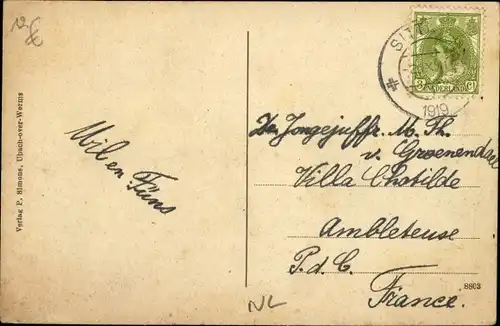 Verlag P. Simons, Ubach-over-Worms
Wil en Füns
SITT
1919
3 ct
NEDERLAND
De Jongejuffr. M. Th.
v. Groenendael
Villa Clotilde
Ambleteuse
P.d.C.
France.
8803
NL